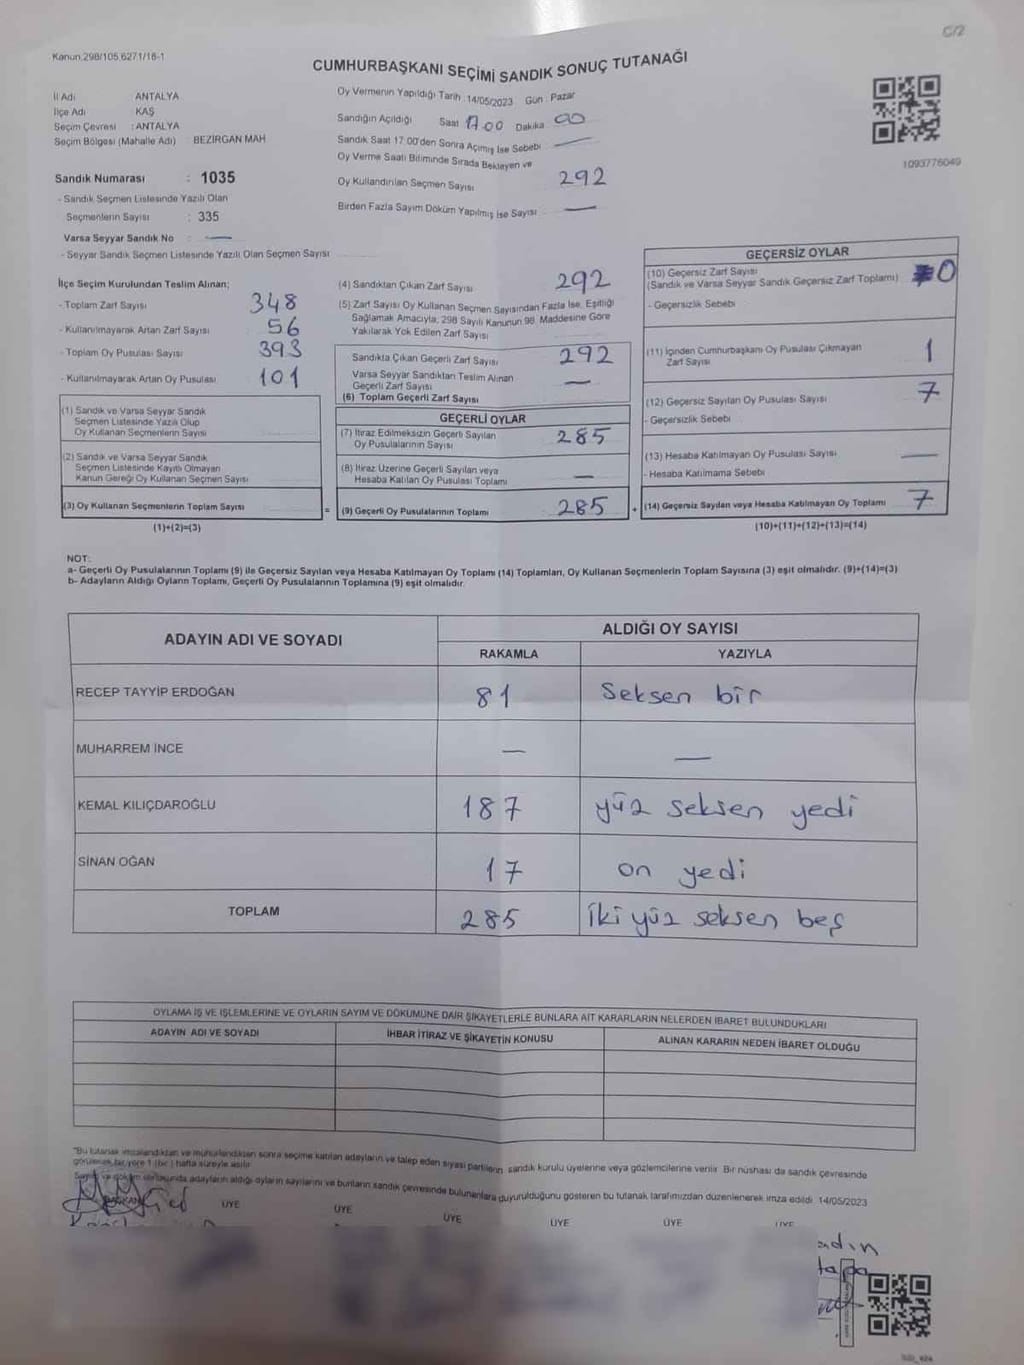 C/2
Kanun.298/105,6271/16-1
CUMHURBAŞKANI SEÇİMİ SANDIK SONUÇ TUTANAĞI
İl Adı ANTALYA
İlçe Adı KAŞ
Seçim Çevresi : ANTALYA
Seçim Bölgesi (Mahalle Adı) BEZİRGAN MAH
Sandık Numarası : 1035
- Sandık Seçmen Listesinde Yazılı Olan
Seçmenlerin Sayısı : 335
Varsa Seyyar Sandık No : —
- Seyyar Sandık Seçmen Listesinde Yazılı Olan Seçmen Sayısı
Oy Vermenin Yapıldığı Tarih 14/05/2023 Gün : Pazar
Sandığın Açıldığı Saat 17.00 Dakika
Sandık Saat 17:00'den Sonra Açımış İse Sebebi —
Oy Verme Saati Bitiminde Sırada Bekleyen ve
Oy Kullandırılan Seçmen Sayısı 292
Birden Fazla Sayım Döküm Yapılmış İse Sayısı —
1093776049
İlçe Seçim Kurulundan Teslim Alınan;
- Toplam Zarf Sayısı 348
- Kullanılmayarak Artan Zarf Sayısı 56
- Toplam Oy Pusulası Sayısı 393
- Kullanılmayarak Artan Oy Pusulası 101
(1) Sandık ve Varsa Seyyar Sandık
Seçmen Listesinde Yazılı Olup
Oy Kullanan Seçmenlerin Sayısı
(2) Sandık ve Varsa Seyyar Sandık
Seçmen Listesinde Kayıtlı Olmayan
Kanun Gereği Oy Kullanan Seçmen Sayısı
(3) Oy Kullanan Seçmenlerin Toplam Sayısı
(1)+(2)=(3)
(4) Sandıktan Çıkan Zarf Sayısı 292
(5) Zarf Sayısı Oy Kullanan Seçmen Sayısından Fazla İse, Eşitliği
Sağlamak Amacıyla, 298 Sayılı Kanunun 98. Maddesine Göre
Yakılarak Yok Edilen Zarf Sayısı
Sandıkta Çıkan Geçerli Zarf Sayısı 292
Varsa Seyyar Sandıktan Teslim Alınan
Geçerli Zarf Sayısı —
(6) Toplam Geçerli Zarf Sayısı
GEÇERLİ OYLAR
(7) İtiraz Edilmeksizin Geçerli Sayılan
Oy Pusulalarının Sayısı 285
(8) İtiraz Üzerine Geçerli Sayılan veya
Hesaba Katılan Oy Pusulası Toplamı —
= (9) Geçerli Oy Pusulalarının Toplamı 285 +
GEÇERSİZ OYLAR
(10) Geçersiz Zarf Sayısı
(Sandık ve Varsa Seyyar Sandık Geçersiz Zarf Toplamı) 0
- Geçersizlik Sebebi
(11) İçinden Cumhurbaşkanı Oy Pusulası Çıkmayan
Zarf Sayısı 1
(12) Geçersiz Sayılan Oy Pusulası Sayısı 7
- Geçersizlik Sebebi
(13) Hesaba Katılmayan Oy Pusulası Sayısı —
- Hesaba Katılmama Sebebi
(14) Geçersiz Sayılan veya Hesaba Katılmayan Oy Toplamı 7
(10)+(11)+(12)+(13)=(14)
NOT:
a- Geçerli Oy Pusulalarının Toplamı (9) ile Geçersiz Sayılan veya Hesaba Katılmayan Oy Toplamı (14) Toplamları, Oy Kullanan Seçmenlerin Toplam Sayısına (3) eşit olmalıdır. (9)+(14)=(3)
b- Adayların Aldığı Oyların Toplamı, Geçerli Oy Pusulalarının Toplamına (9) eşit olmalıdır
ADAYIN ADI VE SOYADI ALDIĞI OY SAYISI
RAKAMLA YAZIYLA
RECEP TAYYİP ERDOĞAN 81 Seksen bir
MUHARREM İNCE — —
KEMAL KILIÇDAROĞLU 187 yüz seksen yedi
SİNAN OĞAN 17 on yedi
TOPLAM 285 İki yüz seksen beş
OYLAMA İŞ VE İŞLEMLERİNE VE OYLARIN SAYIM VE DÖKÜMÜNE DAİR ŞİKAYETLERLE BUNLARA AİT KARARLARIN NELERDEN İBARET BULUNDUKLARI
ADAYIN ADI VE SOYADI İHBAR İTİRAZ VE ŞİKAYETİN KONUSU ALINAN KARARIN NEDEN İBARET OLDUĞU
"Bu tutanak imzalandıktan ve mühürlendikten sonra seçime katılan adayların ve talep eden siyasi partilerin sandık kurulu üyelerine veya gözlemcilerine verilir. Bir nüshası da sandık çevresinde
görülecek bir yere 1 (bir) hafta süreyle asılır
Sayım ve döküm sonucunda adayların aldığı oyların sayılarını ve bunların sandık çevresinde bulunanlara duyurulduğunu gösteren bu tutanak tarafımızdan düzenlenerek imza edildi 14/05/2023
BAŞKAN ÜYE ÜYE ÜYE ÜYE ÜYE ÜYE